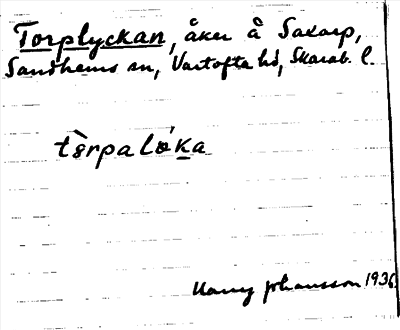 Torplyckan, åker å Saxarp,
Sandhems sn, Vartofta hd, Skarab. l.
tòrpaløka
Harry Johansson 1936.